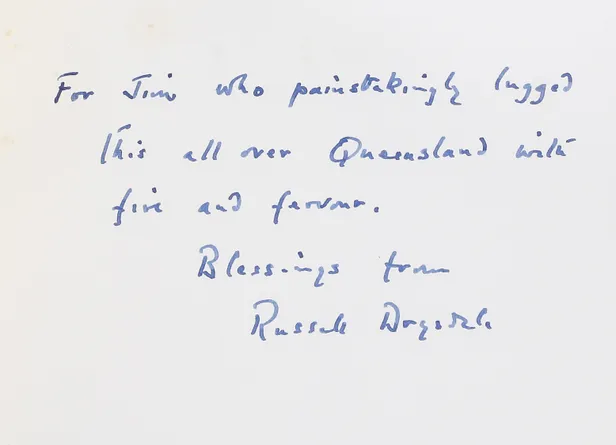 For Jim who painstakingly lugged
this all over Queensland with
fire and fervour.
Blessings from
Russell Drysdale